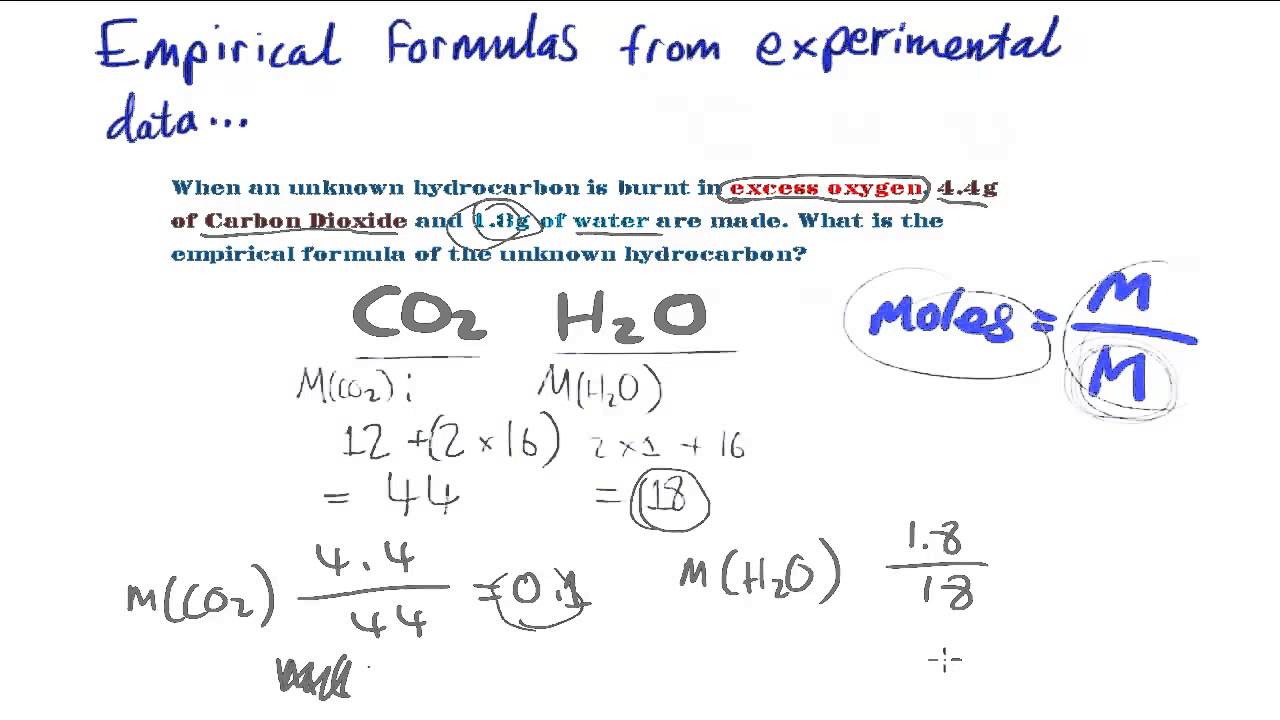 Empirical Formulas from experimental
data...
When an unknown hydrocarbon is burnt in excess oxygen, 4.4g
of Carbon Dioxide and 1.8g of water are made. What is the
empirical formula of the unknown hydrocarbon?
CO₂ H₂O
Moles = M
M
M(CO₂): M(H₂O)
12 + (2 × 16) 2 × 1 + 16
= 44 = 18
M(CO₂) 4.4 = 0.1
44
M(H₂O) 1.8
18